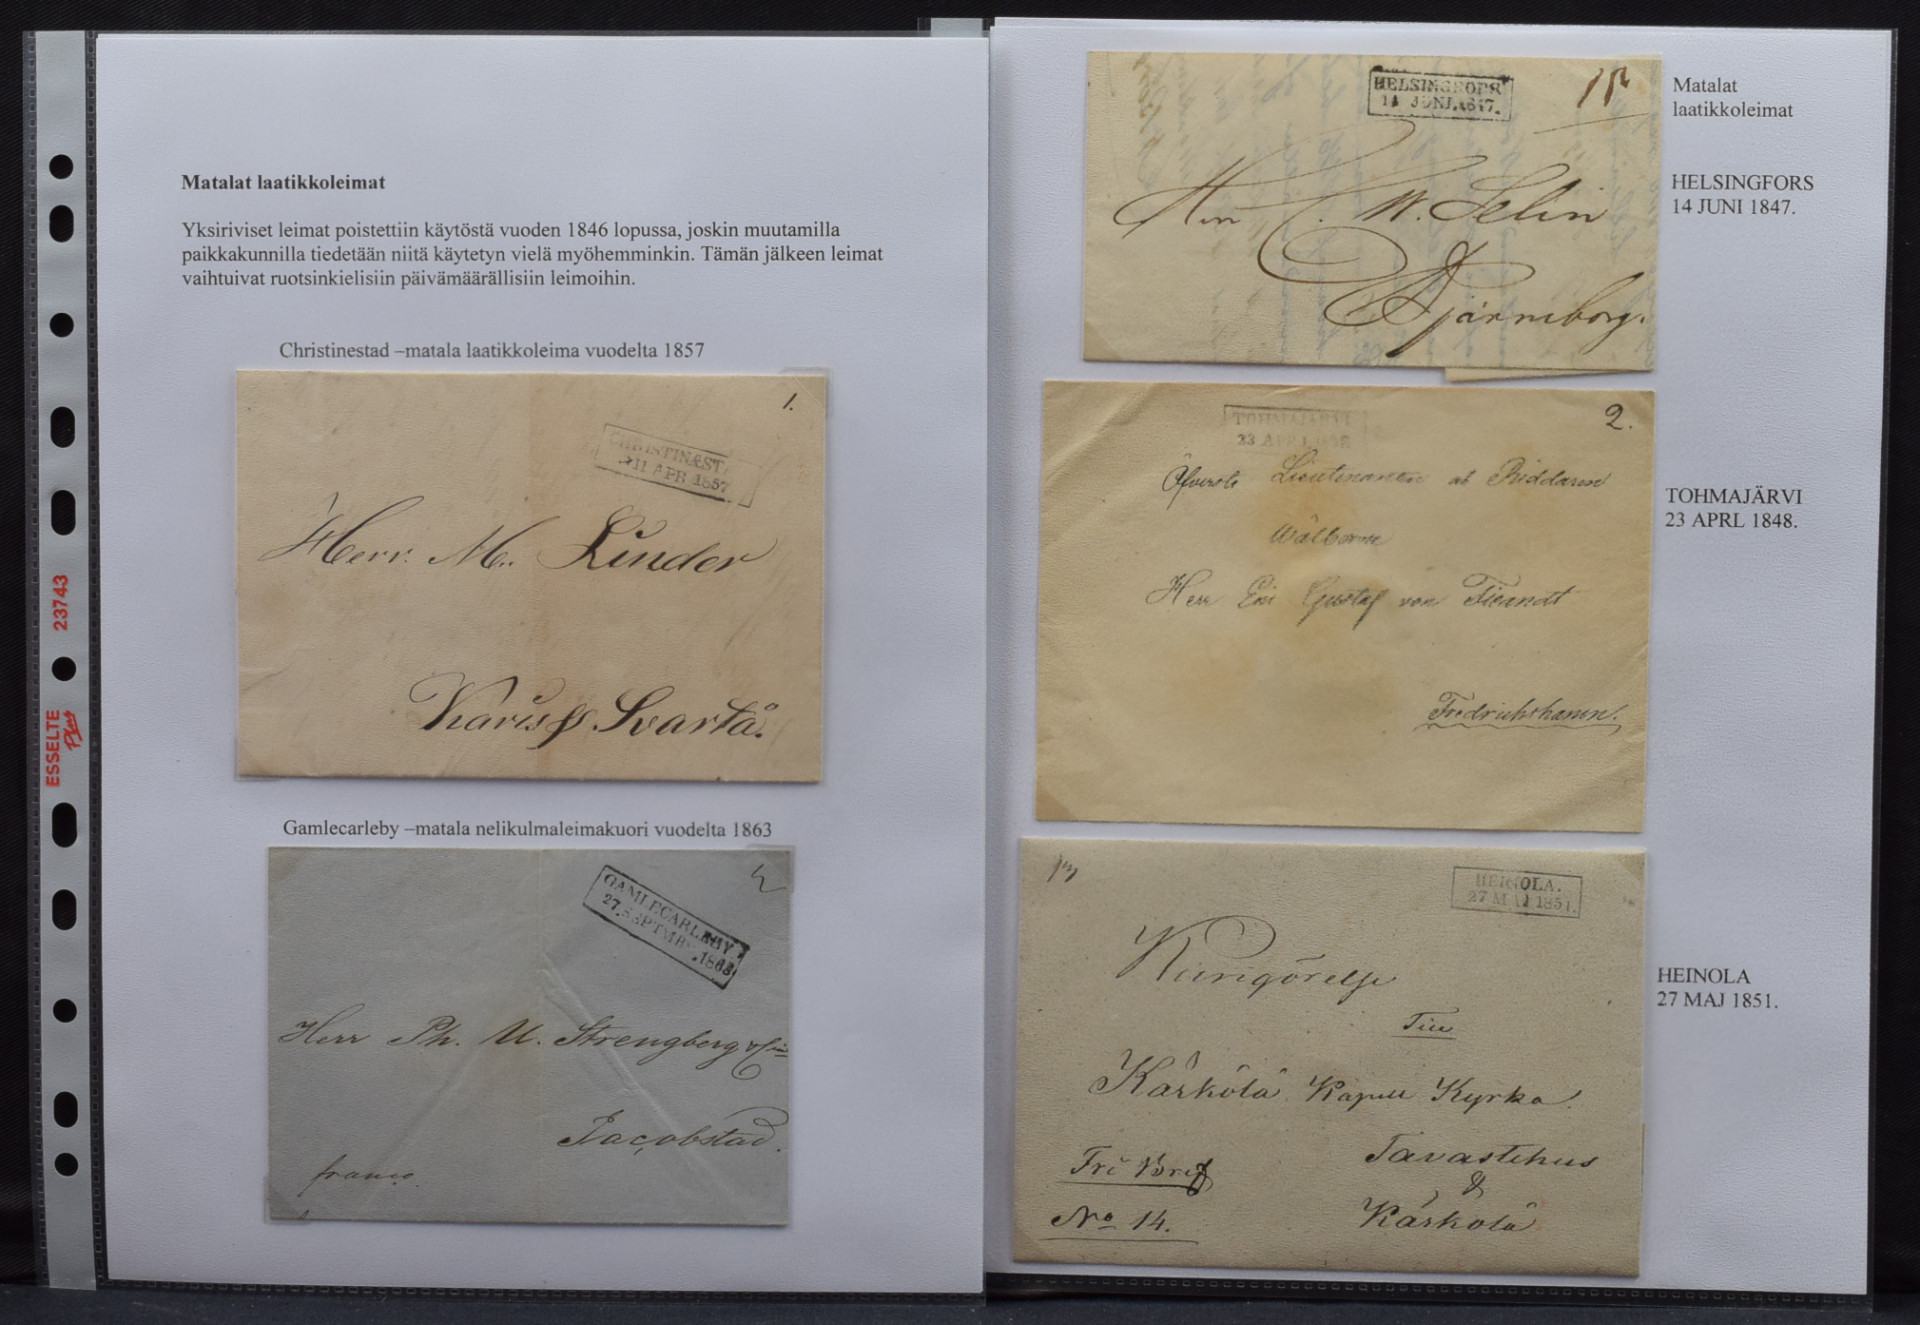 Matalat laatikkoleimat
Yksiriviset leimat poistettiin käytöstä vuoden 1846 lopussa, joskin muutamilla
paikkakunnilla tiedetään niitä käytetyn vielä myöhemminkin. Tämän jälkeen leimat
vaihtuivat ruotsinkielisiin päivämäärällisiin leimoihin.
Christinestad –matala laatikkoleima vuodelta 1857
1.
CHRISTINÆST
11 APR 1857
Herr. M. Linder
Karis & Svartå.
Gamlecarleby –matala nelikulmaleimakuori vuodelta 1863
GAMLECARLEBY.
27. SEPTMB. 1863
Herr Ph. U. Strengberg
Jacobstad.
franco.
ESSELTE Plus 23743
HELSINGFORS
14 JUNI.1847.
C. W. Selin
Björneborg.
Matalat
laatikkoleimat
HELSINGFORS
14 JUNI 1847.
2.
TOHMAJÄRVI
23 APRL 1848
Öfverste Lieutenanten och Riddaren
Wälborne
Herr Gustaf von Fieandt
Fredrichshamn.
TOHMAJÄRVI
23 APRL 1848.
HEINOLA.
27 MAJ 1851.
Kungörelse
Till
Kärkölä Kapell Kyrka.
Fri Bref
No 14.
Tavastehus
&
Kärkölä
HEINOLA
27 MAJ 1851.